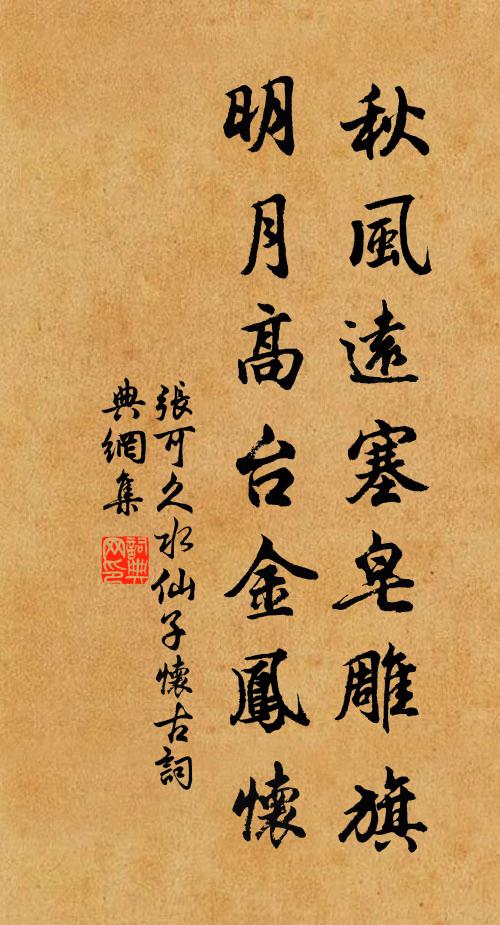 秋風遠塞皂雕旗
明月高台金鳳懷
張可久水仙子懷古詞
典網集
詞典網印